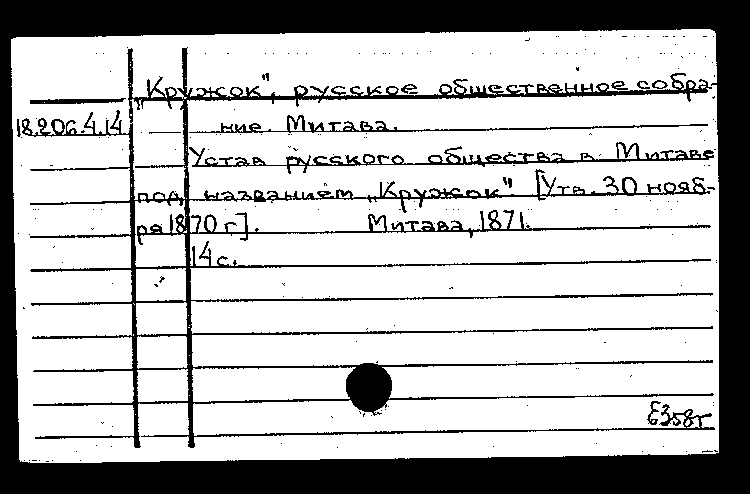 „Кружок", русское общественное собра-
18.206.4.14
ние. Митава.
Устав русского общества в Митаве
под названием „Кружок". [Утв. 30 нояб-
ря 1870 г]. Митава, 1871.
14 с.